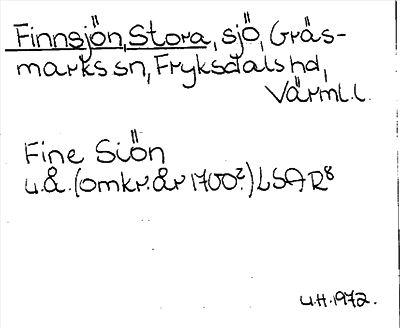 Finnsjön, Stora, sjö, Gräs-
marks sn, Fryksdals hd,
Värml. l.
Fine Siön
u.å. (omkr. år 1700?) LSA R8
U.H. 1972.